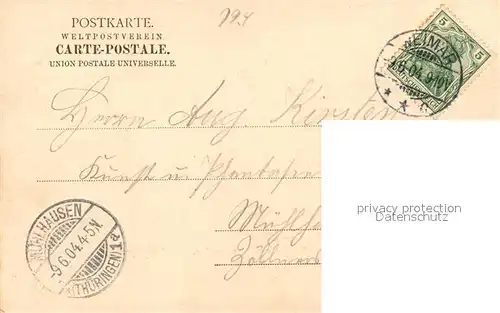 19.4
POSTKARTE.
WELTPOSTVEREIN
CARTE-POSTALE.
UNION POSTALE UNIVERSELLE.
5 5
WEIMAR
9.6.04. 9-10V.
Herrn Aug. Kirsten
Kunst u
Mühlh
MÜHLHAUSEN
-9.6.04.4-5N.
(THÜRINGEN) 1
privacy protection
Datenschutz